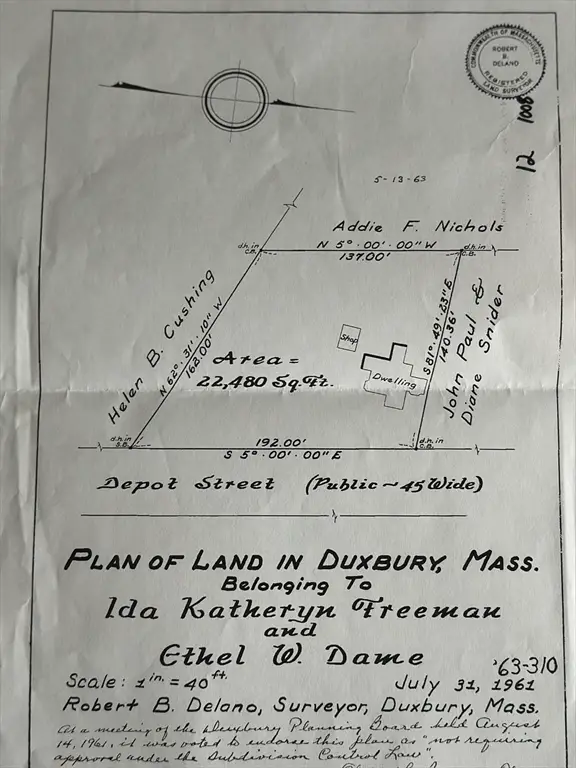 COMMONWEALTH OF MASSACHUSETTS
ROBERT
B.
DELANO
REGISTERED
LAND SURVEYOR
12 1008
5-13-63
Addie F. Nichols
d.h. in
C.B.
N 5°·00'·00" W
137.00'
d.h. in
C.B.
Helen B. Cushing
N 62°·31'·10" W
162.00'
Shop
Dwelling
S 81°·49'·23" E
140.36'
John Paul &
Diane Snider
Area =
22,480 Sq.Ft.
d.h. in
S.B.
192.00'
S 5°·00'·00" E
d.h. in
C.B.
Depot Street (Public ~ 45 Wide)
PLAN OF LAND IN DUXBURY, MASS.
Belonging To
Ida Katheryn Freeman
and
Ethel W. Dame
'63-310
Scale: 1 in. = 40 ft.
July 31, 1961
Robert B. Delano, Surveyor, Duxbury, Mass.
At a meeting of the Duxbury Planning Board held August
14, 1961, it was voted to endorse this plan as "not requiring
approval under the Subdivision Control Law".